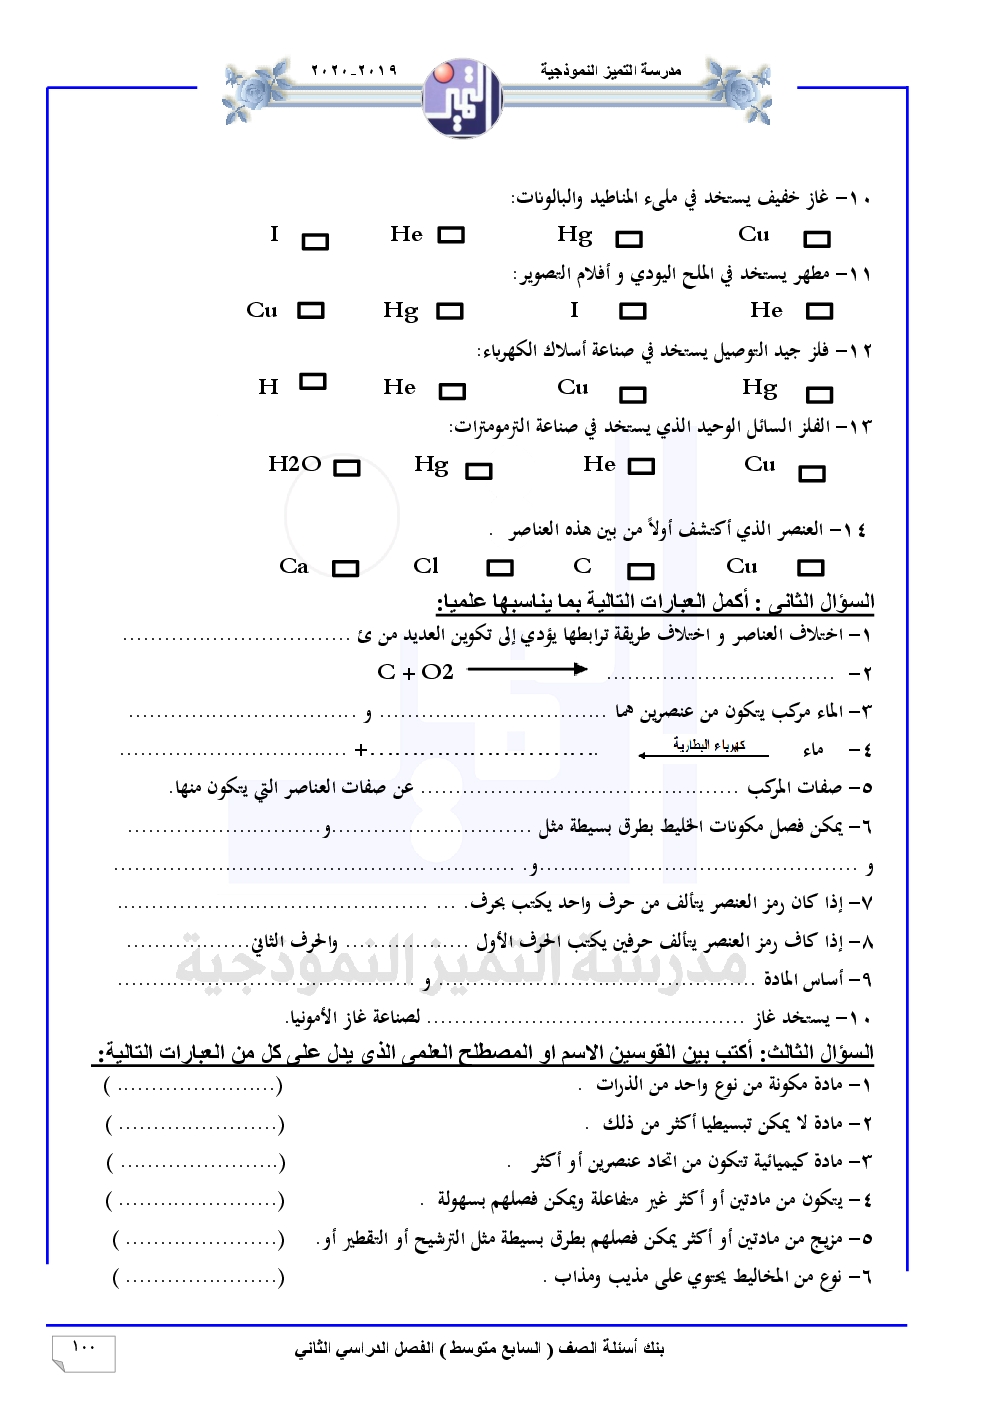 مدرسة التميز النموذجية ٢٠١٩-٢٠٢٠
التميز
١٠- غاز خفيف يستخد في ملىء المناطيد والبالونات:
Cu Hg He I
١١- مطهر يستخد في الملح اليودي و أفلام التصوير:
He I Hg Cu
١٢- فلز جيد التوصيل يستخد في صناعة أسلاك الكهرباء:
Hg Cu He H
١٣- الفلز السائل الوحيد الذي يستخد في صناعة الترمومترات:
Cu He Hg H2O
١٤- العنصر الذي أكتشف أولاً من بين هذه العناصر .
Cu C Cl Ca
السؤال الثانى : أكمل العبارات التالية بما يناسبها علميا:
١- اختلاف العناصر و اختلاف طريقة ترابطها يؤدي إلى تكوين العديد من ئ .................................
٢- ................................. C + O2
٣- الماء مركب يتكون من عنصرين هما ................................. و .................................
٤- ماء كهرباء البطارية ..........................+ .................................
٥- صفات المركب .............................................. عن صفات العناصر التي يتكون منها.
٦- يمكن فصل مكونات الخليط بطرق بسيطة مثل .............................و............................
و ..............................................و. ............ ...........................................
٧- إذا كان رمز العنصر يتألف من حرف واحد يكتب بحرف. ... .............................................
٨- إذا كاف رمز العنصر يتألف حرفين يكتب الحرف الأول .................. والحرف الثاني..................
٩- أساس المادة .............................................. و ...........................................
١٠- يستخد غاز .............................................. لصناعة غاز الأمونيا.
مدرسة التميز النموذجية
السؤال الثالث: أكتب بين القوسين الاسم او المصطلح العلمى الذى يدل على كل من العبارات التالية:
١- مادة مكونة من نوع واحد من الذرات . (...................... )
٢- مادة لا يمكن تبسيطيا أكثر من ذلك . (...................... )
٣- مادة كيميائية تتكون من اتحاد عنصرين أو أكثر . (...................... )
٤- يتكون من مادتين أو أكثر غير متفاعلة ويمكن فصلهم بسهولة . (...................... )
٥- مزيج من مادتين أو أكثر يمكن فصلهم بطرق بسيطة مثل الترشيح أو التقطير أو. (...................... )
٦- نوع من المخاليط يحتوي على مذيب ومذاب . (...................... )
بنك أسئلة الصف ( السابع متوسط ) الفصل الدراسي الثاني
١٠٠